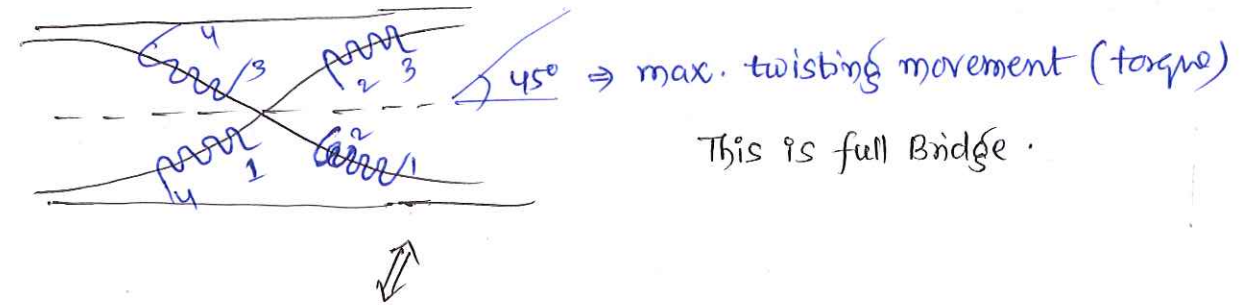 4
3
2 3
45° ⇒ max. twisting movement (torque)
This is full Bridge.
1
4
2
1